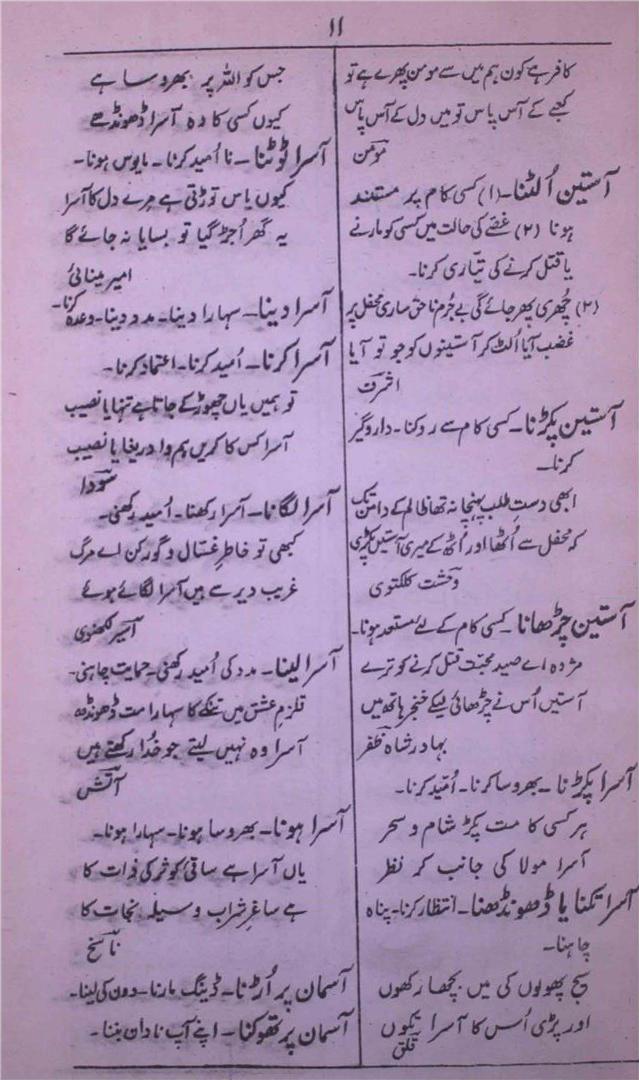 ۱۱
کافر ہے کون ہم میں سے مومن پھرے ہے تو
کعبے کے آس پاس تو میں دل کے آس پاس
مومن
آستین اُلٹنا۔ (۱) کسی کام پر مستند
ہونا (۲) غصے کی حالت میں کسی کو مارنے
یا قتل کرنے کی تیاری کرنا۔
(۲) چُھری پھر جائے گی بے جُرم ناحق ساری محفل پر
غضب آیا اُلٹ کر آستینوں کو جو تو آیا
اشرف
آستین پکڑنا۔ کسی کام سے روکنا۔ داروگیر
کرنا۔
ابھی دستِ طلب پہنچا نہ تھا ظالم کے دامن تک
کہ محفل سے اُٹھا اور اُٹھ کے میری آستیں پکڑی
وحشت کلکتوی
آستین چڑھانا۔ کسی کام کے لئے مستعد ہونا۔
مژدہ اے صید محبت قتل کرنے کو ترے
آستیں اُس نے چڑھائی لیکے خنجر ہاتھ میں
بہادر شاہ ظفر
آسرا پکڑنا۔ بھروسا کرنا۔ اُمید کرنا۔
ہر کسی کا مت پکڑ شام و سحر
آسرا مولا کی جانب کر نظر
آسرا تکنا یا ڈھونڈھنا۔ انتظار کرنا۔ پناہ
چاہنا۔
سیج پھولوں کی میں بچھا رکھوں
اور پڑی اُس کا آسرا تکوں
قلق
جس کو اللہ پر بھروسا ہے
کیوں کسی کا وہ آسرا ڈھونڈھے
آسرا ٹوٹنا۔ نا اُمید کرنا۔ مایوس ہونا۔
کیوں یاس توڑتی ہے مرے دل کا آسرا
یہ گھر اُجڑ گیا تو بسایا نہ جائے گا
امیر مینائی
آسرا دینا۔ سہارا دینا۔ مدد دینا۔ وعدہ کرنا۔
آسرا کرنا۔ اُمید کرنا۔ اعتماد کرنا۔
تو ہمیں یاں چھوڑ کے جاتا ہے تنہا یا نصیب
آسرا کس کا کریں ہم وا دریغا یا نصیب
سودا
آسرا لگانا۔ آسرا رکھنا۔ اُمید رکھنی۔
کبھی تو خاطرِ غسّال و گورکن اے مرگ
غریب دیر سے ہیں آسرا لگائے ہوئے
اسیر لکھنوی
آسرا لینا۔ مدد کی اُمید رکھنی۔ حمایت چاہنی۔
قلزم عشق میں تنکے کا سہارا مت ڈھونڈھ
آسرا وہ نہیں لیتے جو خُدا رکھتے ہیں
آتش
آسرا ہونا۔ بھروسا ہونا۔ سہارا ہونا۔
یاں آسرا ہے ساقیٔ کوثر کی ذات کا
ہے ساغرِ شراب وسیلہ نجات کا
ناسخ
آسمان پر اُڑنا۔ ڈینگ مارنا۔ دون کی لینا۔
آسمان پر تھوکنا۔ اپنے آپ نادان بننا۔